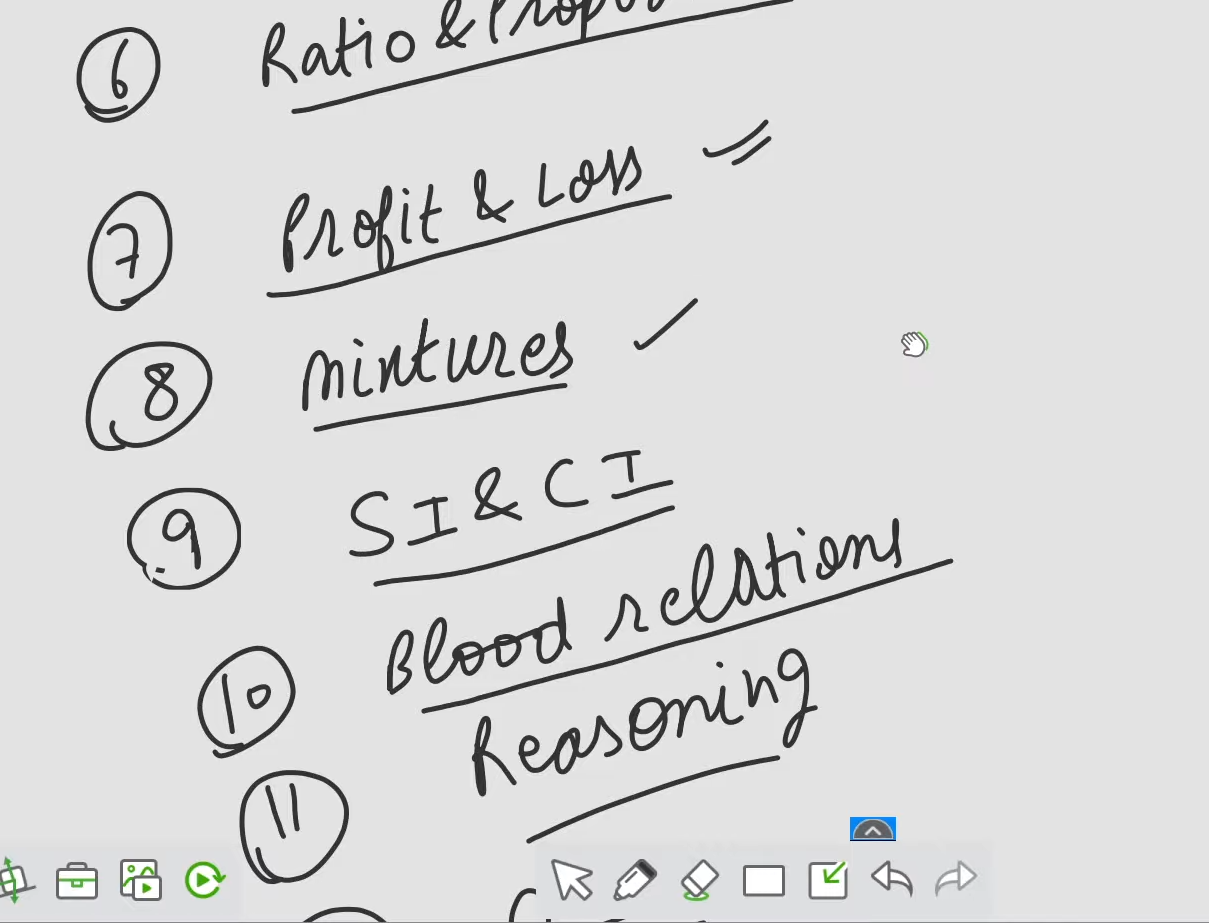 6 Ratio &
7 Profit & Loss
8 Mixtures
9 SI & CI
10 Blood relations
11 Reasoning